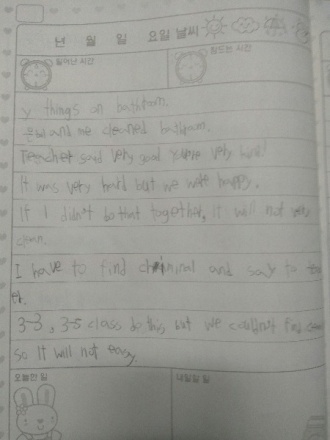 년 월 일 요일 날씨
일어난 시간 잠드는 시간
y things on bathroom.
and me cleaned bathroom.
Teacher said very good very hard!
It was very hard but we were happy.
If I didn't do that together, it will not very
clean.
I have to find criminal and say to
er.
3-3, 3-5 class do this but we couldn't find
so it will not easy.
오늘한 일 내일할 일